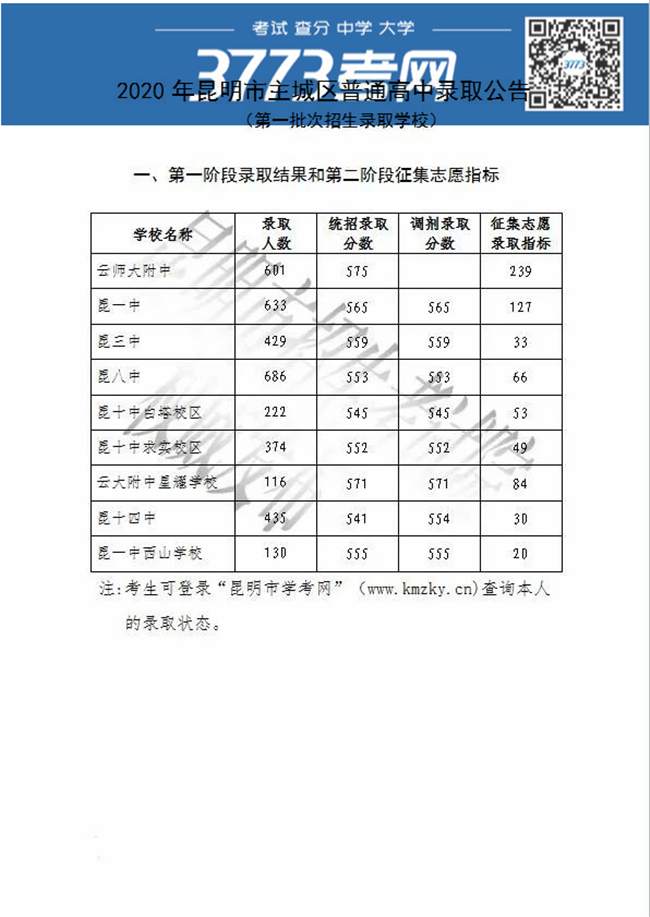 考试 查分 中学 大学
3773考网
3773
2020 年昆明市主城区普通高中录取公告
（第一批次招生录取学校）
一、第一阶段录取结果和第二阶段征集志愿指标
学校名称 录取人数 统招录取分数 调剂录取分数 征集志愿录取指标
云师大附中 601 575 239
昆一中 633 565 565 127
昆三中 429 559 559 33
昆八中 686 553 553 66
昆十中白塔校区 222 545 545 53
昆十中求实校区 374 552 552 49
云大附中星耀学校 116 571 571 84
昆十四中 435 541 554 30
昆一中西山学校 130 555 555 20
注:考生可登录“昆明市学考网”（www.kmzky.cn)查询本人
的录取状态。